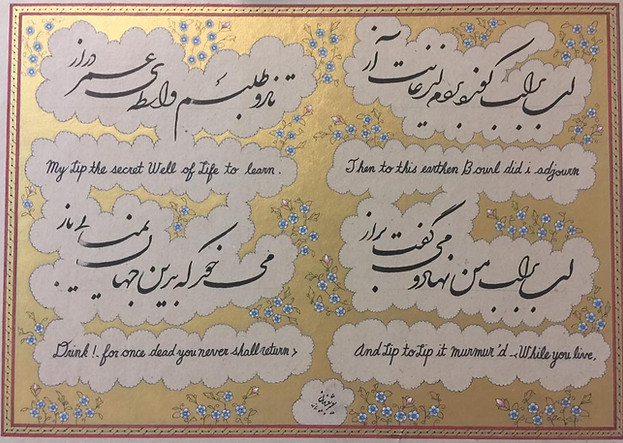 لب بر لب کوزه بردم از غایت آز
تا زو طلبم واسطهٔ عمر دراز
Then to this earthen Bowl did i adjourn
My Lip the secret Well of Life to learn.
لب بر لب من نهاد و می گفت براز
می خور که بدین جهان نمی آیی باز
And Lip to Lip it murmur'd - While you live,
Drink! - for once dead you never shall return >